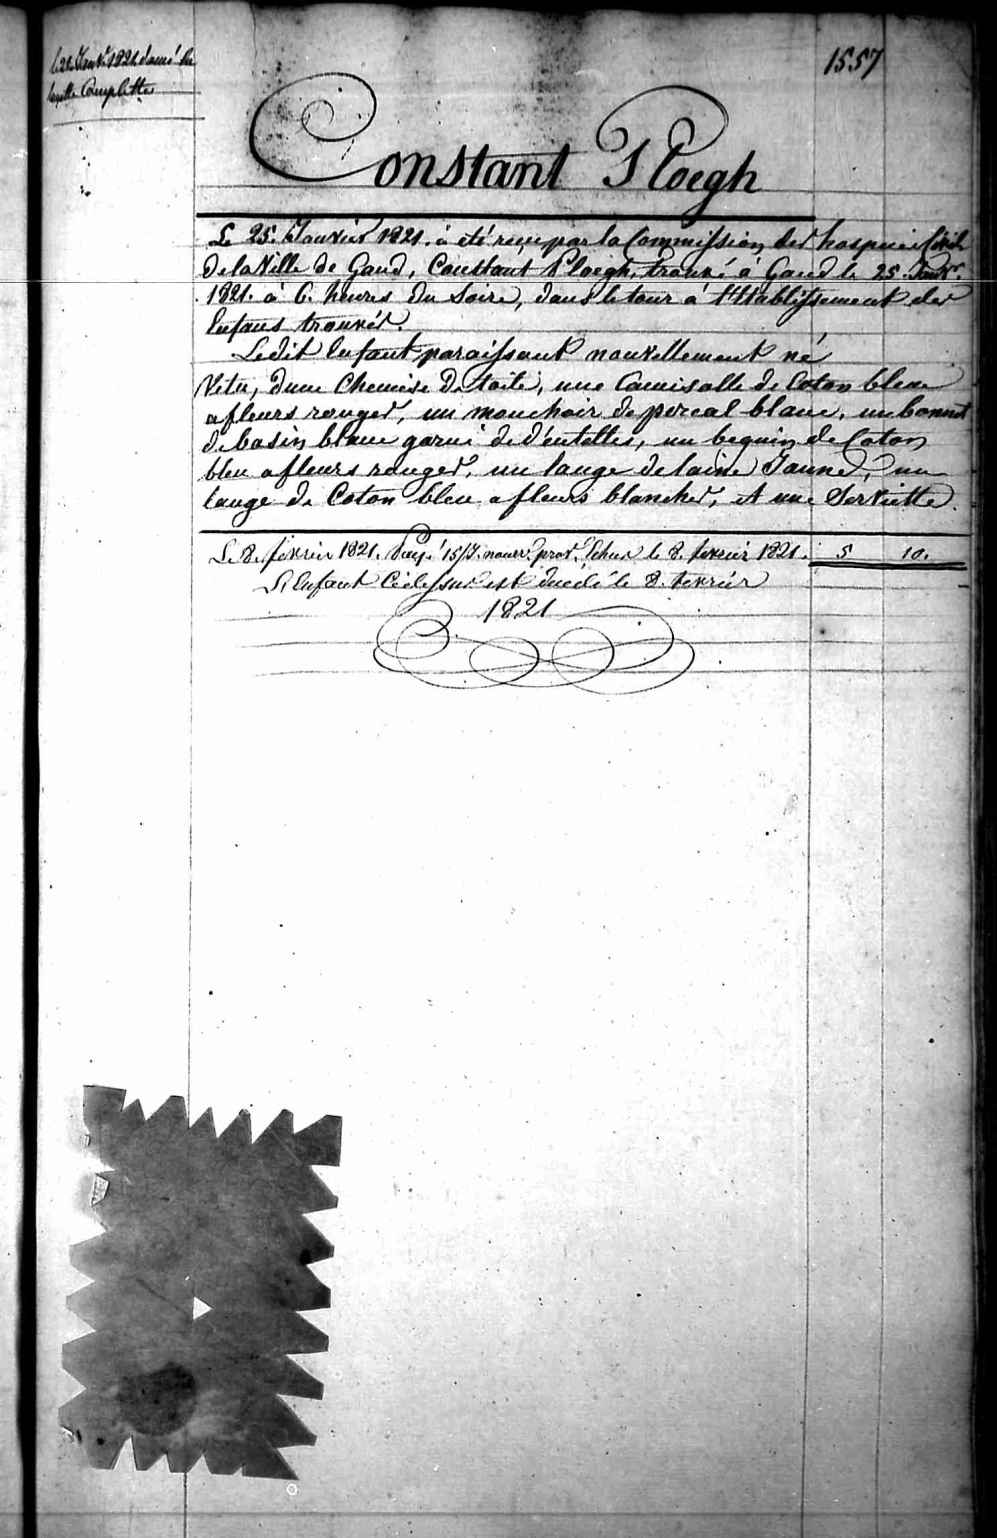 1557
Janv. 1821 donné la
layette Complette
Constant Ploegh
Le 25. Janvier 1821. a été reçu par la Commission des hospices Civils
de la Ville de Gand, Constant Ploegh, trouvé à Gand le 25. Janvr.
1821. à 6. heures du Soire, dans le tour à l'Etablissement des
Enfans trouvés.
Ledit Enfant paraissant nouvellement né
Vetu, d'une Chemise de toile, une Camisolle de Coton bleue
a fleurs rouges, un mouchoir de percal blanc, un bonnet
de basin blanc garni de d'entelles, un beguin de Coton
bleu a fleurs rouges, un lange de laine Jaune, un
lange de Coton bleu a fleurs blanches, et une Serviette.
Le 8. fevrier 1821. Payé 15/J. nourr. prov. échus le 8. fevrier 1821. 5 10.
L'Enfant Cidessus est decedé le 8. fevrier
1821